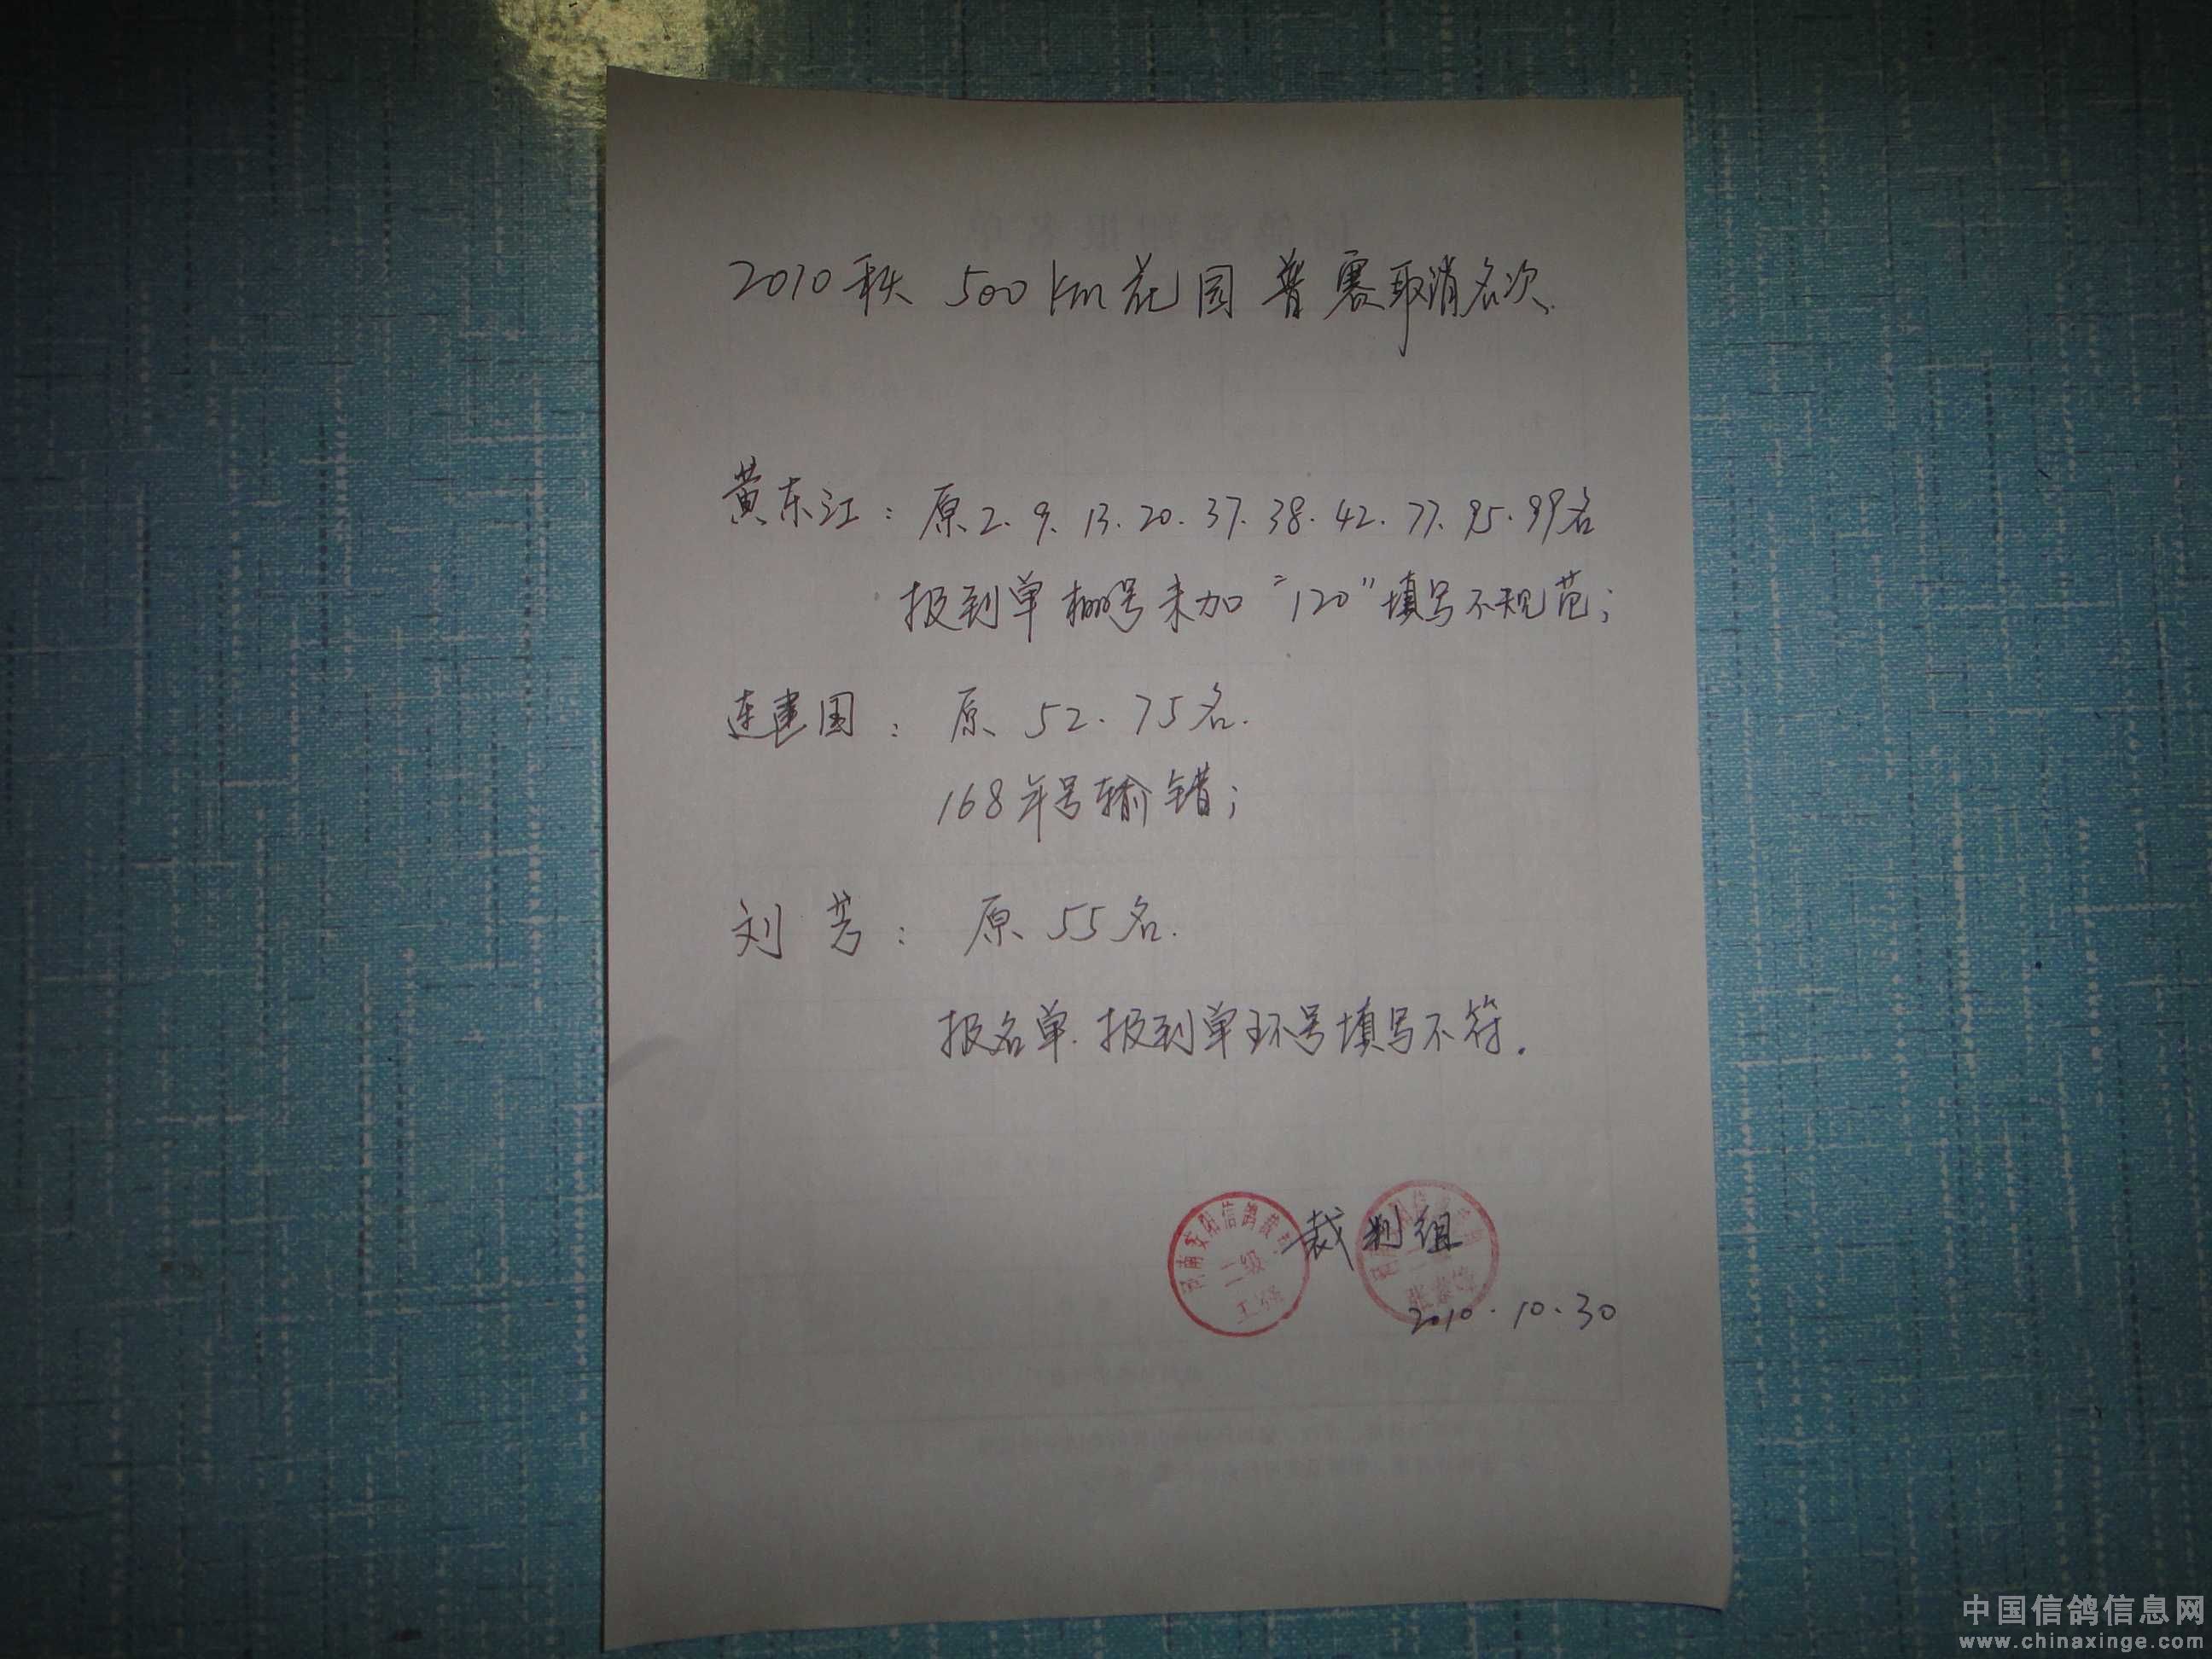 2010秋 500km花园普赛取消名次.
黄东江：原2.9.13.20.37.38.42.77.95.99名
报到单棚号未加“120”填写不规范；
连建国：原52.75名.
168年号输错；
刘芳：原55名.
报名单.报到单环号填写不符.
河南安阳信鸽裁判
二级
裁判组
2010.10.30
中国信鸽信息网
www.chinaxinge.com